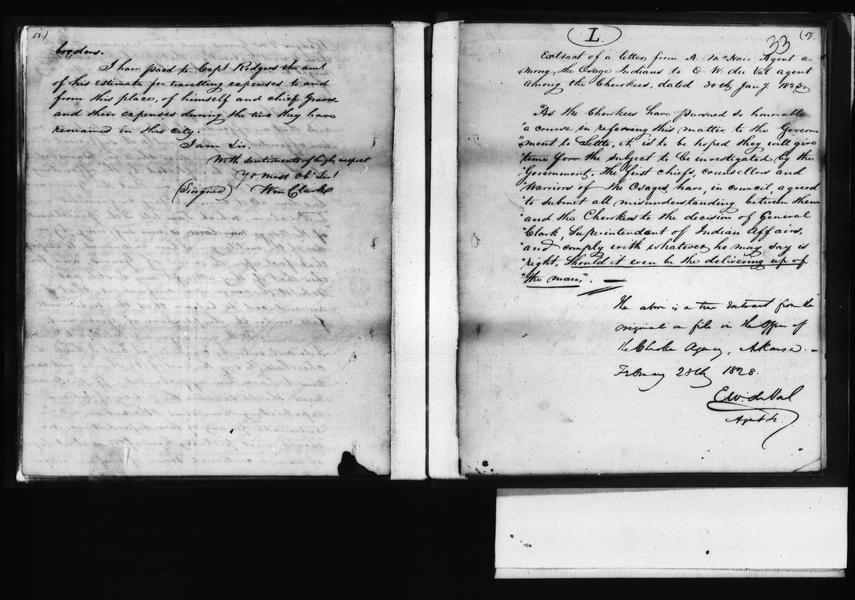 loggers.
I have paid to Capt Rodgers the amt
of his estimate for travelling expenses to and
from this place, of himself and chief Graves
and their expenses during the time they have
remained in this city.
I am Sir.
With sentiments of high respect
Yr most Ob Sert
(Signed) Wm Clark
L.
33
Extract of a letter from A. McNair Agent a
mong the Osage Indians to E. W. du Val agent
among the Cherokees, dated 30th Jany
"As the Cherokees have pursued so honorable
"a course in referring this matter to the Govern
"ment to settle, it is to be hoped they will give
"time for the subject to be investigated by the
"Government. The first chiefs, counsellors and
"Warriors of the Osages, have, in council, agreed
"to submit all misunderstanding between them
"and the Cherokees to the decision of General
"Clark, Superintendent of Indian Affairs,
"and comply with whatever he may say is
"right, should it even be the delivering up of
"the man". —
The above is a true extract from the
original on file in the Office of
the Cherokee Agency, Arkansa. —
February 28th, 1828.
E. W. du Val
Agent &c.